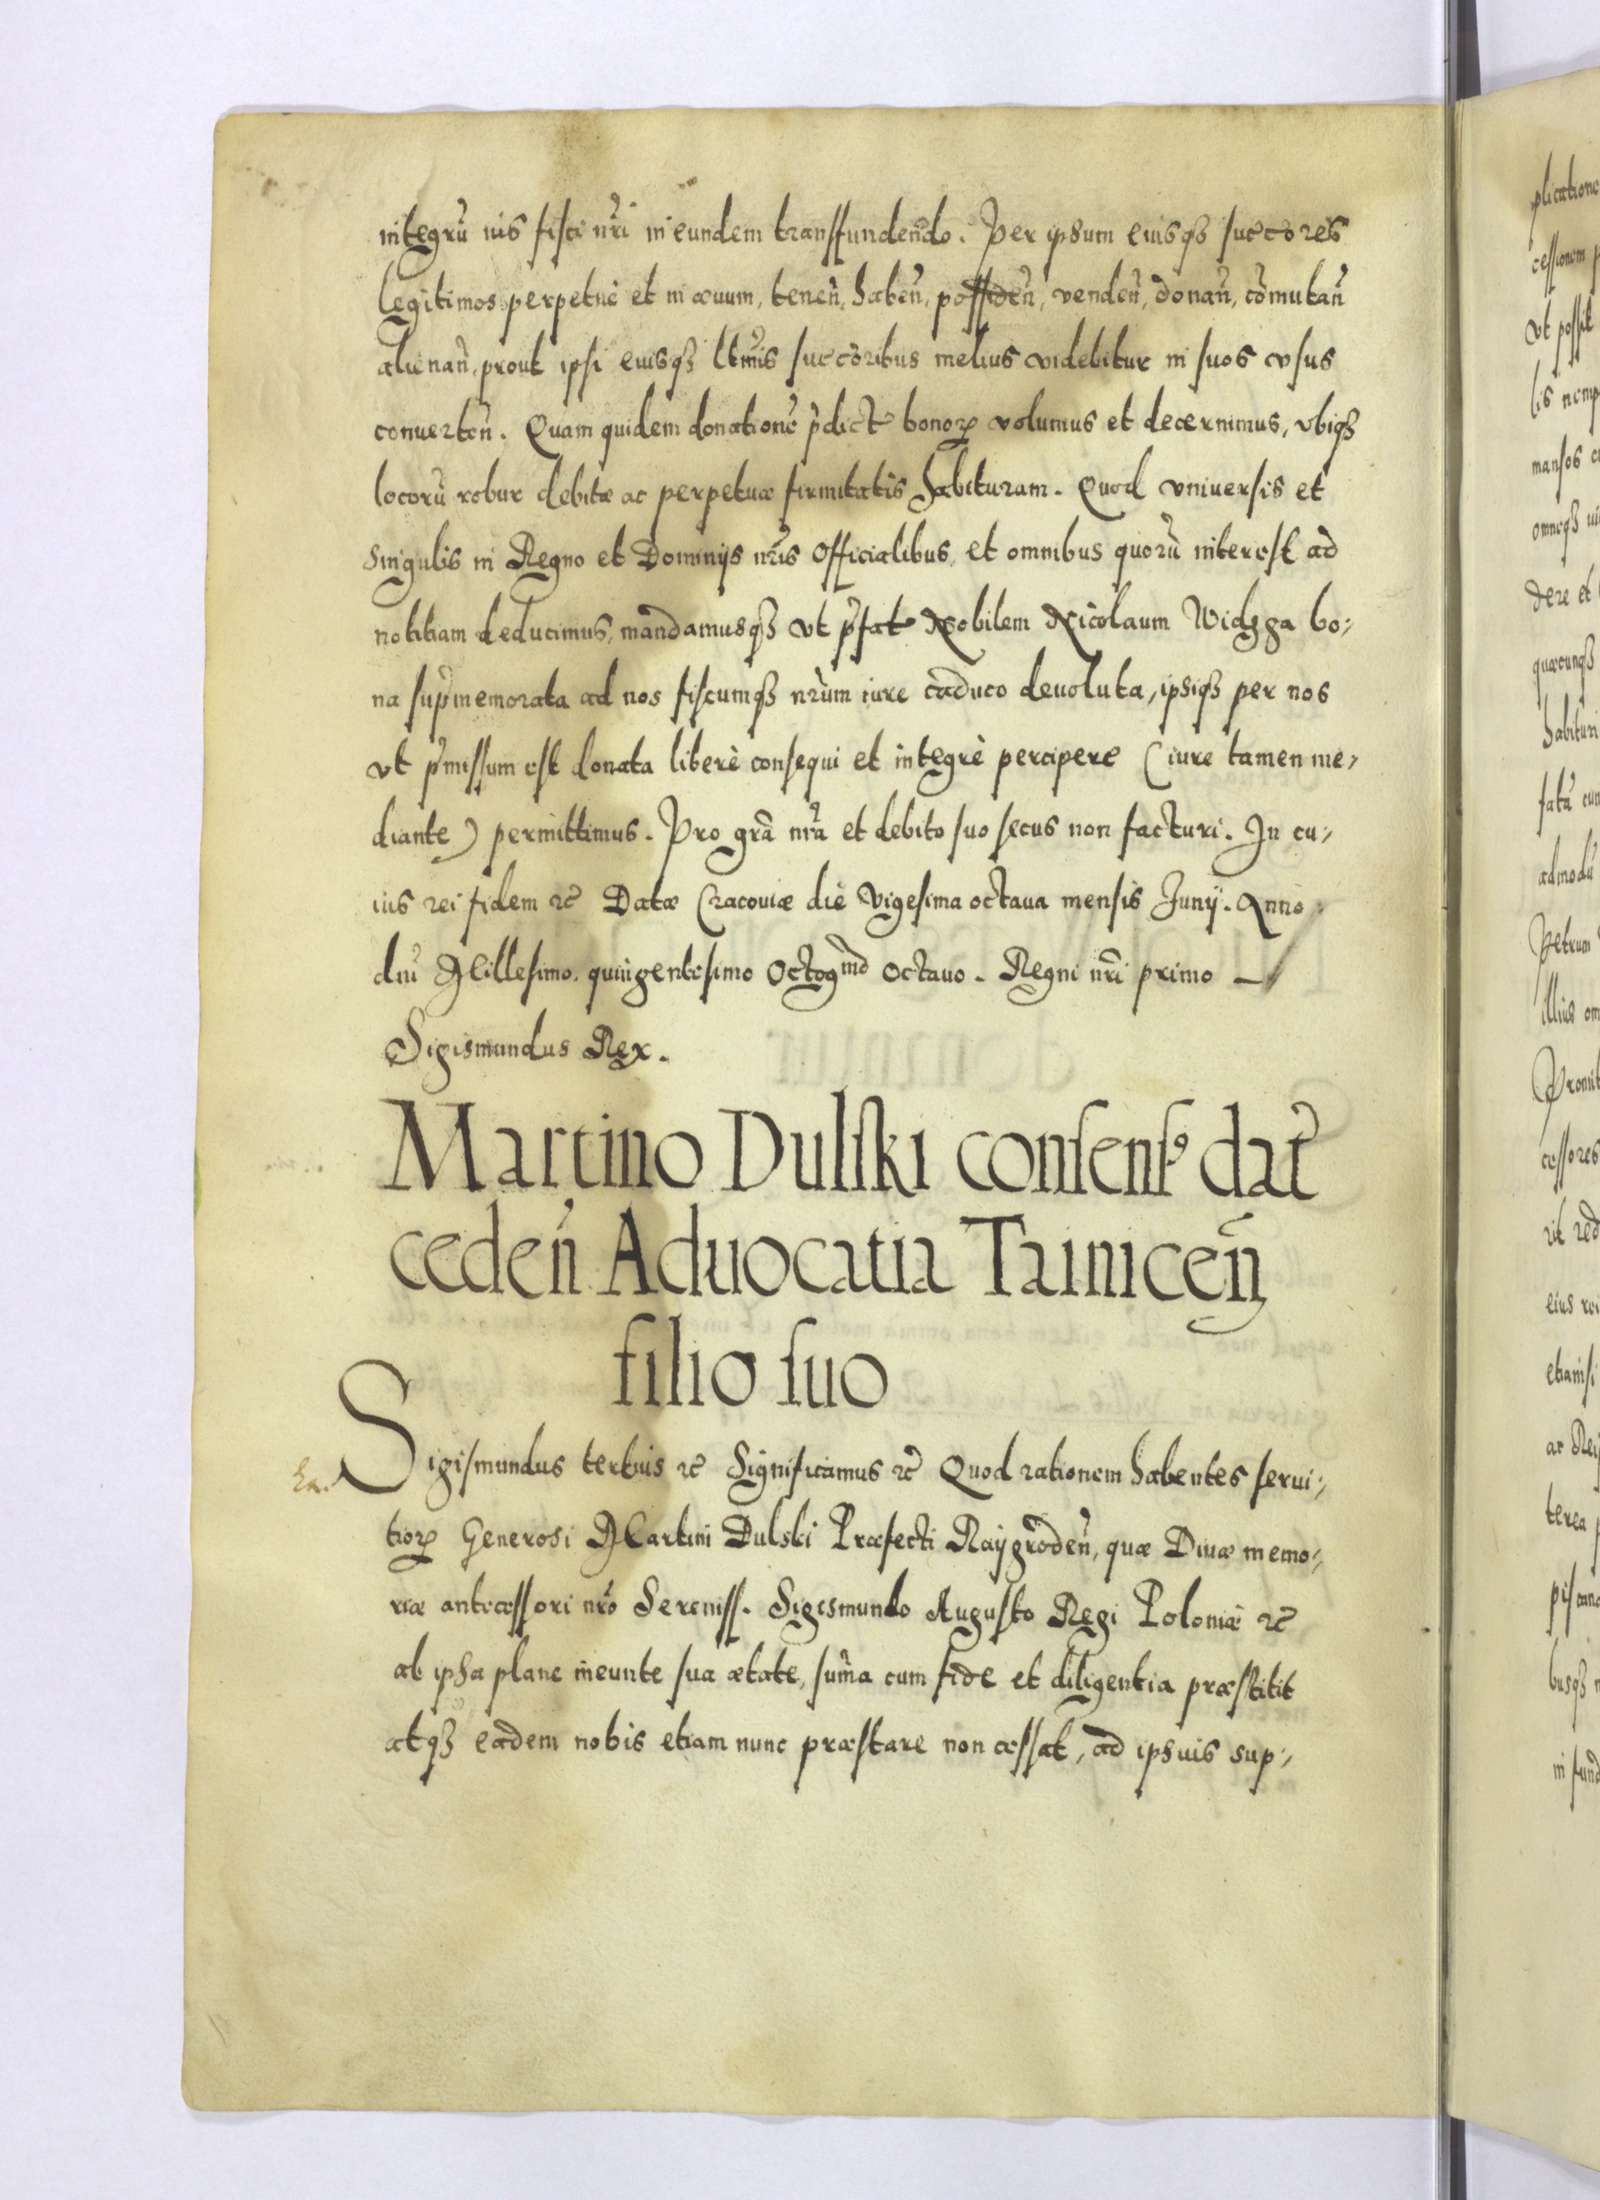 integrũ ius fisci nr̃i in eundem transffundendo. Per ipsum eiusq₃ succõres
legitimos perpetuè et in æuum, teneñ, habeñ, possideñ, vendeñ, donañ, cõmutañ
alienañ, prout ipsi eiusq₃ ltimis succõribus melius videbitur in suos vsus
conuerteñ. Quam quidem donationẽ p̃dict bonoꝝ volumus et decernimus, vbiq₃
locorũ robur debitæ ac perpetuæ firmitatis habituram. Quod vniuersis et
singulis in Regno et Dominijs nr̃is Officialibus, et omnibus quorũ interest ad
notitiam deducimus, mandamusq₃ vt p̃fat Nobilem Nicolaum Widzga bo-
na sup̃memorata ad nos fiscumq₃ nr̃um iure caduco deuoluta, ipsiq₃ per nos
vt p̃missum est donata liberè consequi et integrè percipere (iure tamen me-
diante) permittimus. Pro grã nr̃a et debito suo secus non facturi. In cu-
ius rei fidem ꝛc̃ Datæ Cracouiæ die Vigesima octaua mensis Junij. Anno
dni Millesimo quingentesimo Octogmo octauo. Regni nr̃i primo
Sigismundus Rex.
Martino Dulski consensꝰ dat̃
cedeñ Aduocatia Tainiceñ
filio suo
Sigismundus tertius ꝛc̃ Significamus ꝛc̃ Quod rationem habentes serui-
tioꝝ Generosi Martini Dulski Præfecti Raijgrodeñ, quæ Diuæ memo-
riæ antecessori nr̃o Sereniss. Sigismundo Augusto Regi Poloniæ ꝛc̃
ab ipsa plane ineunte sua ætate, sum̃a cum fide et diligentia præstitit
atq₃ eadem nobis etiam nunc præstare non cessat, ad ipsius sup-